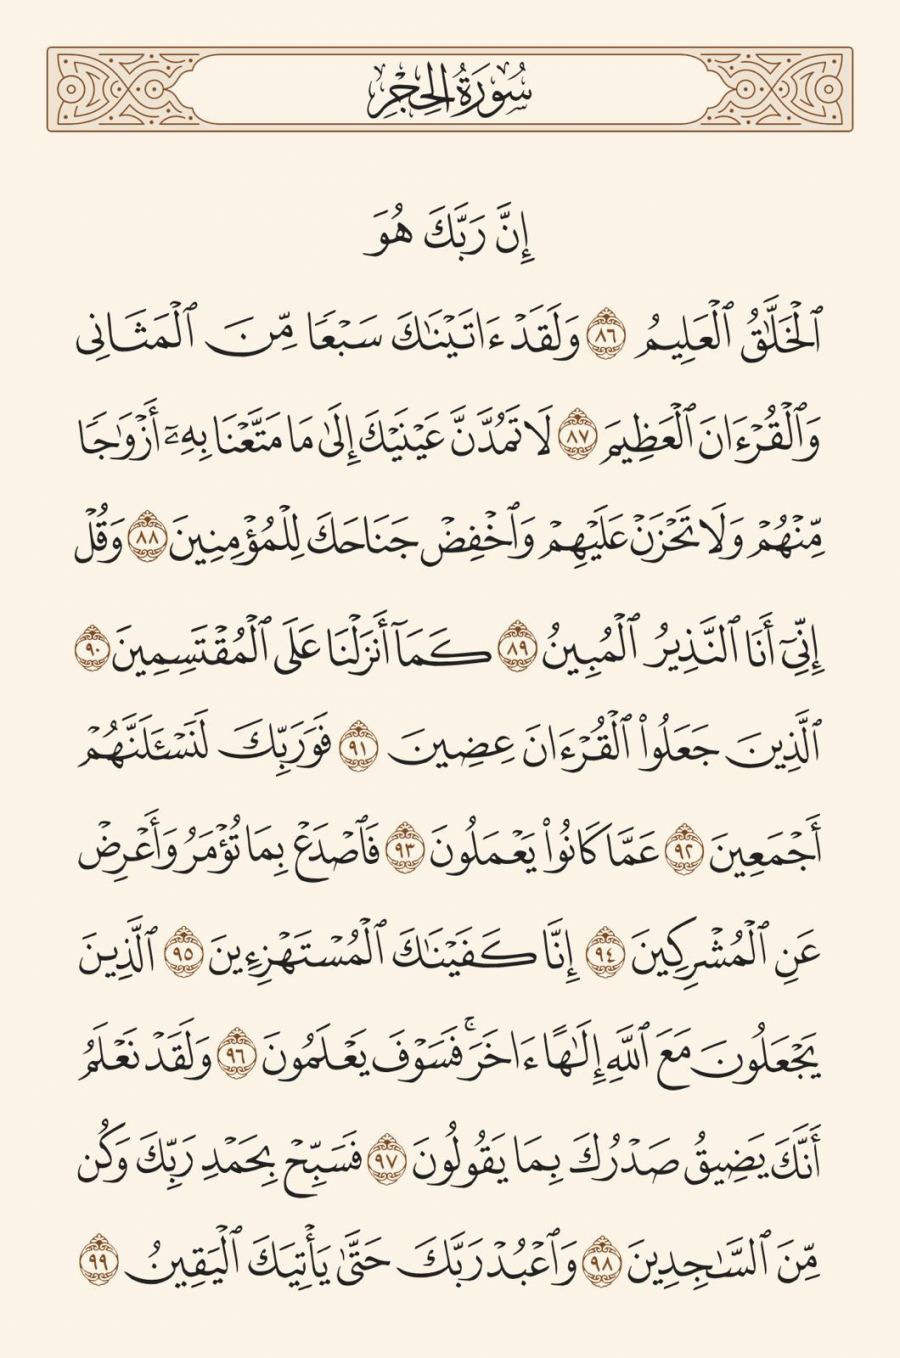 سُورَةُ الحِجْرِ
إِنَّ رَبَّكَ هُوَ
ٱلْخَلَّٰقُ ٱلْعَلِيمُ ٨٦ وَلَقَدْ ءَاتَيْنَٰكَ سَبْعًا مِّنَ ٱلْمَثَانِى
وَٱلْقُرْءَانَ ٱلْعَظِيمَ ٨٧ لَا تَمُدَّنَّ عَيْنَيْكَ إِلَىٰ مَا مَتَّعْنَا بِهِۦٓ أَزْوَٰجًا
مِّنْهُمْ وَلَا تَحْزَنْ عَلَيْهِمْ وَٱخْفِضْ جَنَاحَكَ لِلْمُؤْمِنِينَ ٨٨ وَقُلْ
إِنِّىٓ أَنَا ٱلنَّذِيرُ ٱلْمُبِينُ ٨٩ كَمَآ أَنزَلْنَا عَلَى ٱلْمُقْتَسِمِينَ ٩٠
ٱلَّذِينَ جَعَلُوا۟ ٱلْقُرْءَانَ عِضِينَ ٩١ فَوَرَبِّكَ لَنَسْـَٔلَنَّهُمْ
أَجْمَعِينَ ٩٢ عَمَّا كَانُوا۟ يَعْمَلُونَ ٩٣ فَٱصْدَعْ بِمَا تُؤْمَرُ وَأَعْرِضْ
عَنِ ٱلْمُشْرِكِينَ ٩٤ إِنَّا كَفَيْنَٰكَ ٱلْمُسْتَهْزِءِينَ ٩٥ ٱلَّذِينَ
يَجْعَلُونَ مَعَ ٱللَّهِ إِلَٰهًا ءَاخَرَ ۚ فَسَوْفَ يَعْلَمُونَ ٩٦ وَلَقَدْ نَعْلَمُ
أَنَّكَ يَضِيقُ صَدْرُكَ بِمَا يَقُولُونَ ٩٧ فَسَبِّحْ بِحَمْدِ رَبِّكَ وَكُن
مِّنَ ٱلسَّٰجِدِينَ ٩٨ وَٱعْبُدْ رَبَّكَ حَتَّىٰ يَأْتِيَكَ ٱلْيَقِينُ ٩٩